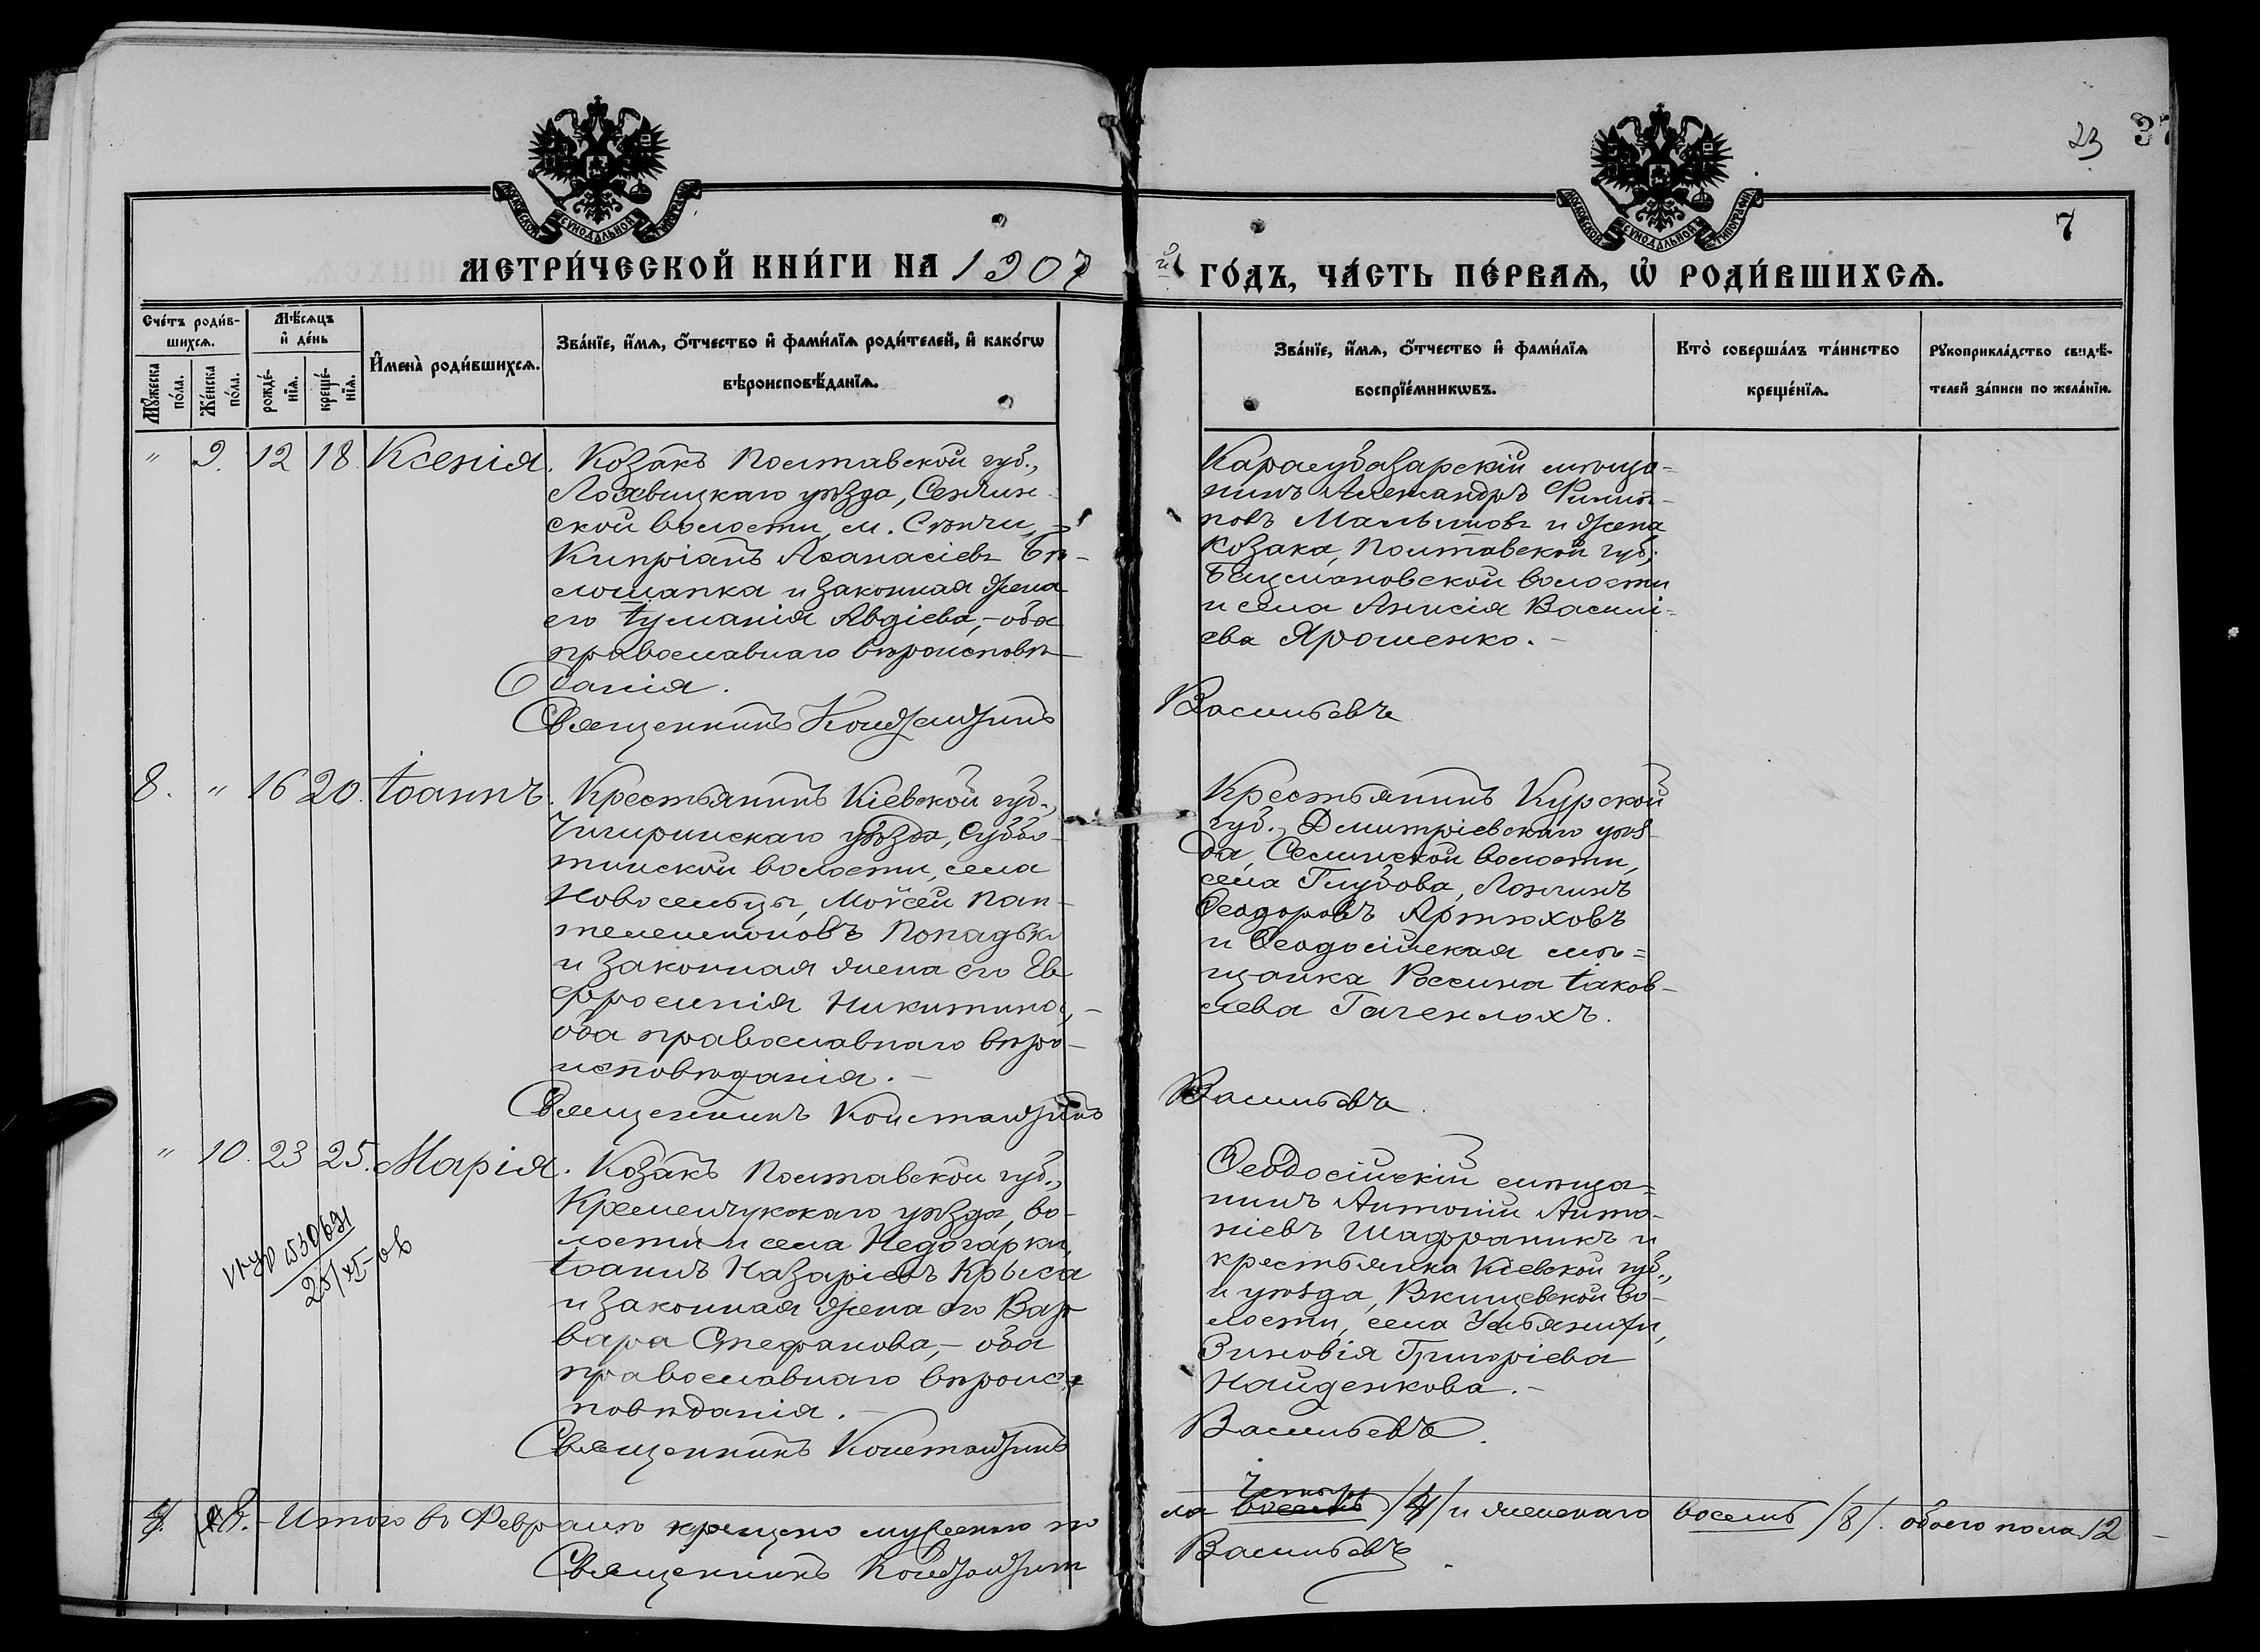 23 37
7
МОСКОВСКОЙ СѴНОДАЛЬНОЙ ТИПОГРАФІИ
МОСКОВСКОЙ СѴНОДАЛЬНОЙ ТИПОГРАФІИ
МЕТРИ́ЧЕСКОЙ КНИ́ГИ НА 1907
й ГО́ДЪ, ЧА́СТЬ ПЕ́РВАѦ, Ѡ҆ РОДИ́ВШИХСѦ.
Сче́тъ роди́в-
шихсѧ.
Мꙋ́жеска по́ла.
Же́нска по́ла.
Мѣ́сѧцъ
и҆ де́нь
рожде́-
нїѧ.
креще́-
нїѧ.
И҆мена̀ роди́вшихсѧ.
Зва́нїе, и҆́мѧ, ѻ҆́тчество и҆ фами́лїѧ роди́телей, и҆ како́гѡ
вѣроисповѣ́данїѧ.
Зва́нїе, и҆́мѧ, ѻ҆́тчество и҆ фами́лїѧ
воспрїе́мникѡвъ.
Кто̀ соверша́лъ та́инство
креще́нїѧ.
Рꙋкоприкла́дство свидѣ́-
телей за́писи по жела́нїю.
" 9. 12 18 Ксенія.
Козакъ Полтавской губ.,
Лохвицкаго уѣзда, Сенчин-
ской волости, м. Сѣнчи,
Кипріанъ Аѳанасіевъ Бѣ-
лошапка и законная жена
его Іуліанія Авдіева, - оба
православнаго вѣроисповѣ-
данія.
Священникъ Константинъ
Карасубазарскій мѣща-
нинъ Александръ Филип-
повъ Малышовъ и жена
козака, Полтавской губ.,
волости
и села Анисія Василі-
ева Ярошенко. -
Васильевъ
8. " 16 20. Іоаннъ.
Крестьянинъ Кіевской губ.,
Чигиринскаго уѣзда, Суббо-
тинской волости, села
Новосельцы, Мойсей Пан-
телеимоновъ Попадько
и законная жена его Ев-
фросинія Никитина, -
оба православнаго вѣро-
исповѣданія. -
Священникъ Константинъ
Крестьянинъ Курской
губ., Дмитріевскаго уѣз-
да, волости,
села Глубова, Логинъ
Ѳеодоровъ Артюховъ
и Ѳеодосійская мѣ=
щанка Іаков-
лева
Васильевъ
" 10. 23 25. Марія.
Козакъ Полтавской губ.,
Кременчукскаго уѣзда, во-
лости и села Недогарки,
Іоаннъ Назаріевъ Крыса
и законная жена его Вар-
вара Стефанова, - оба
православнаго вѣроис-
повѣданія. -
Священникъ Константинъ
Ѳеодосійскій мѣща=
нинъ Антоній Анто-
ніевъ Шафраникъ и
крестьянка Кіевской губ.,
и уѣзда, во-
лости, села Ульяники,
Зиновія Григоріева
Найденкова. -
Васильевъ.
4. 8. - Итого въ Февралѣ крещено мужескаго по
ла восемь четыре /4/ и женскаго восемь /8/. обоего пола 12
Священникъ Константинъ
Васильевъ